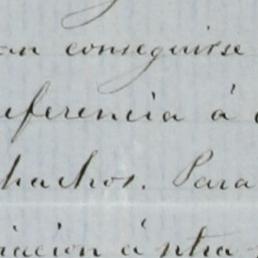 an conseguirse
eferencia á
hachos. Para
iacion á otra